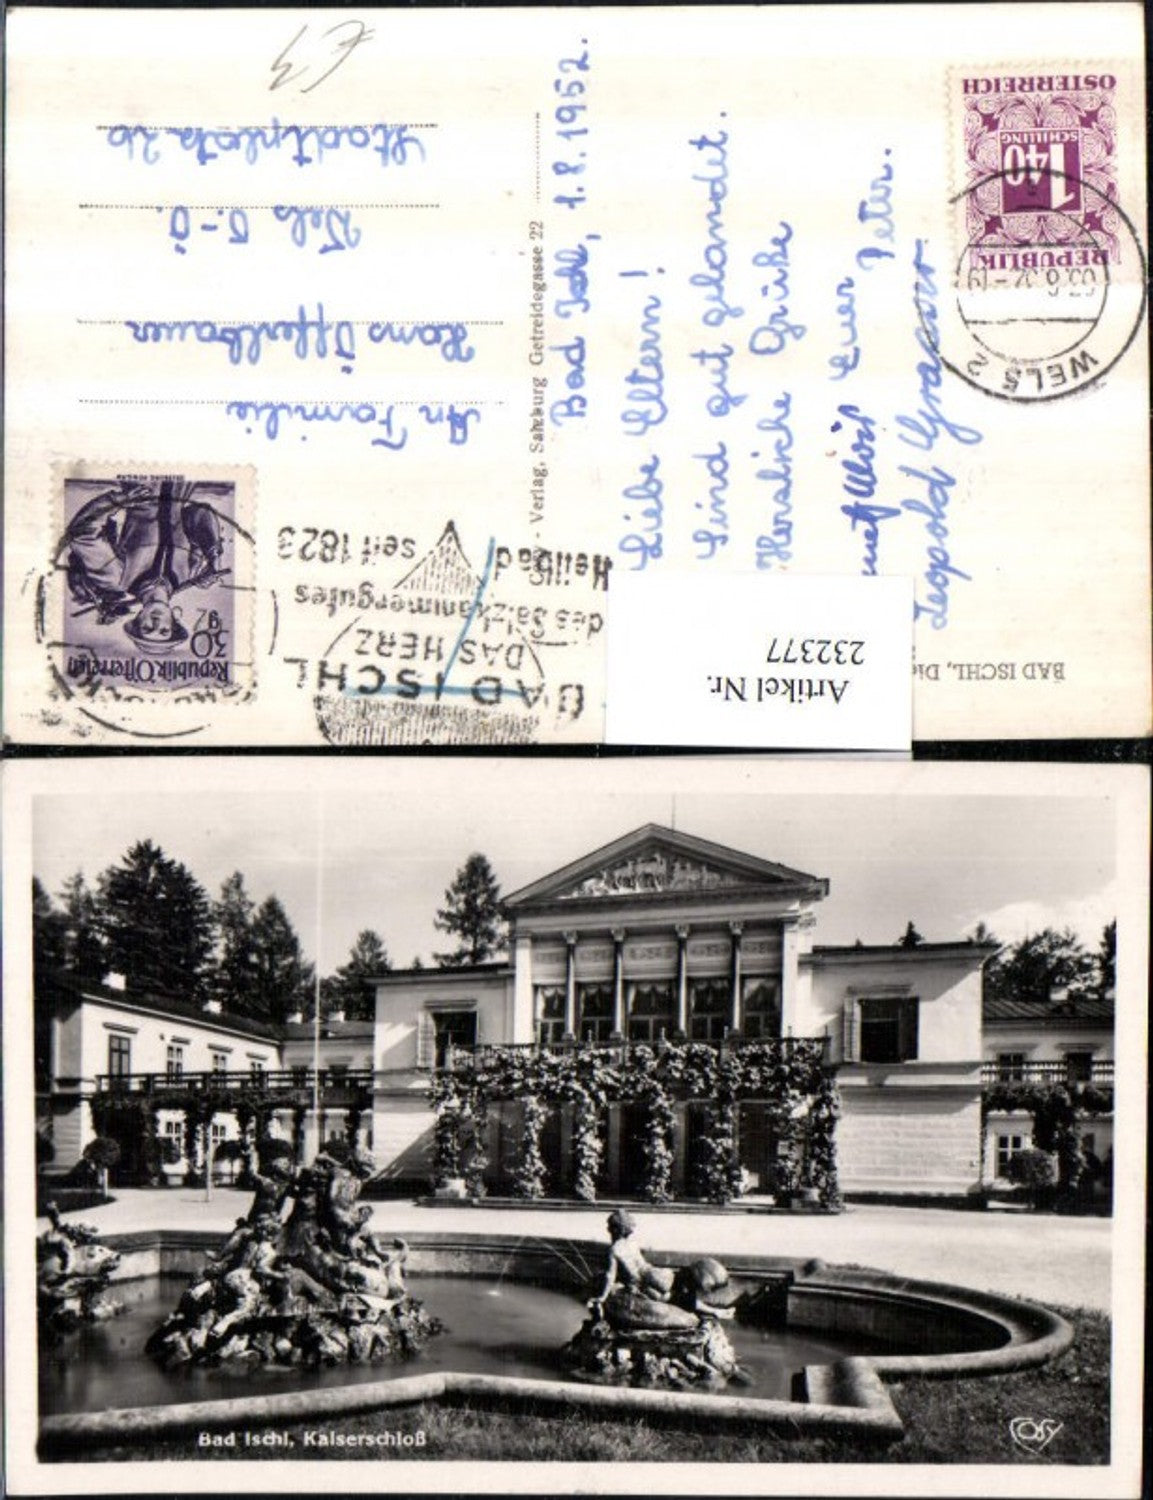 Bad Ischl, 1.8.1952.
Liebe Eltern!
Sind gut gelandet.
Herzliche Grüße
Euer Peter.
Leopold
An Familie
Hans Öfferlbauer
Wels O.-Ö.
Stadtplatz 26
- Verlag, Salzburg Getreidegasse 22
BAD ISCHL
DAS HERZ
des Salzkammergutes
Heilbad seit 1823
Republik Österreich
30 g
REPUBLIK
1 40
SCHILLING
ÖSTERREICH
WELS 2
BAD ISCHL, Die
Artikel Nr.
232377
Bad Ischl, Kaiserschloß
COSY